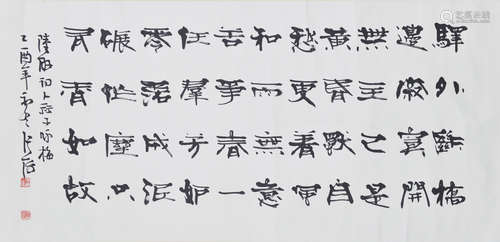 驛外斷橋
邊寂寞開
無主已是
黃昏獨自
愁更着風
和雨無意
苦爭春一
任羣芳妒
零落成泥
碾作塵只
有香如故
陸游词卜算子咏梅
乙酉年